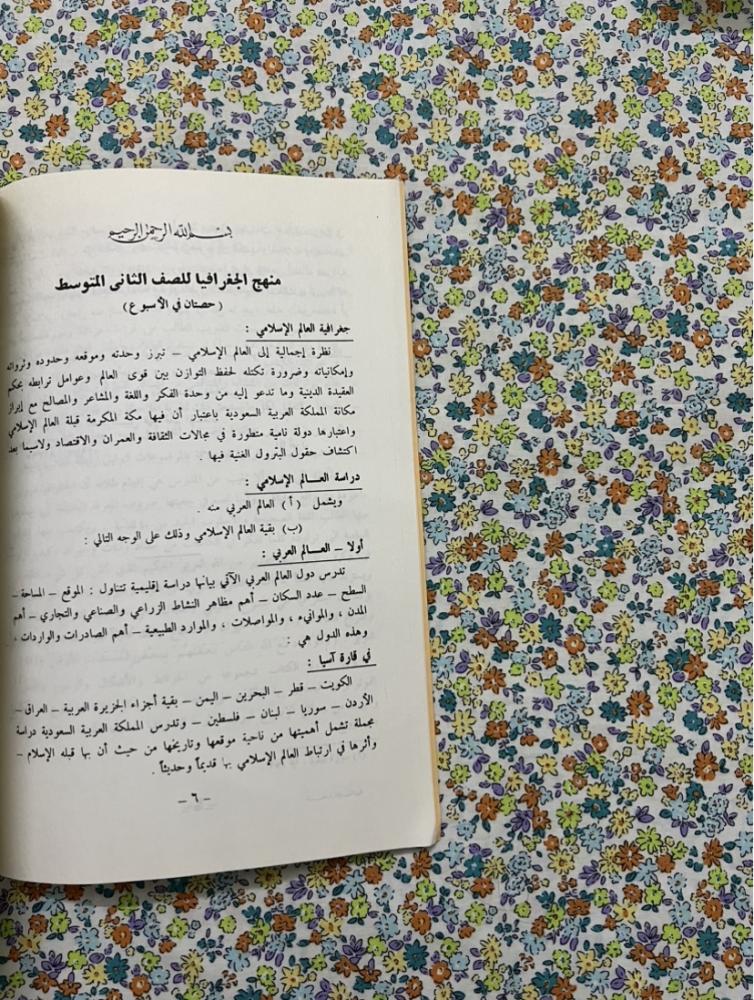 بسم الله الرحمن الرحيم
منهج الجغرافيا للصف الثانى المتوسط
( حصتان في الأسبوع )
جغرافية العالم الإسلامي :
نظرة إجمالية إلى العالم الإسلامي – تبرز وحدته وموقعه وحدوده وثرواته
وإمكانياته وضرورة تكتله لحفظ التوازن بين قوى العالم وعوامل ترابطه بحكم
العقيدة الدينية وما تدعو إليه من وحدة الفكر واللغة والمشاعر والمصالح مع إبراز
مكانة المملكة العربية السعودية باعتبار أن فيها مكة المكرمة قبلة العالم الإسلامي
واعتبارها دولة نامية متطورة في مجالات الثقافة والعمران والاقتصاد ولاسيما بعد
اكتشاف حقول البترول الغنية فيها .
دراسة العـالم الإسلامي :
ويشمل ( أ ) العالم العربي منه .
(ب) بقية العالم الإسلامي وذلك على الوجه التالي :
أولا – العـالم العربي :
تدرس دول العالم العربي الآتي بيانها دراسة إقليمية تتناول : الموقع – المساحة –
السطح – عدد السكان – أهم مظاهر النشاط الزراعي والصناعي والتجاري – أهم
المدن ، والموانيء ، والمواصلات ، والموارد الطبيعية – أهم الصادرات والواردات ،
وهذه الدول هي :
في قارة آسيا :
الكويت – قطر – البحرين – اليمن – بقية أجزاء الجزيرة العربية – العراق –
الأردن – سوريا – لبنان – فلسطين – وتدرس المملكة العربية السعودية دراسة
مجملة تشمل أهميتها من ناحية موقعها وتاريخها من حيث أن بها قبله الإسلام –
وأثرها في ارتباط العالم الإسلامي بها قديماً وحديثاً .
– ٦ –